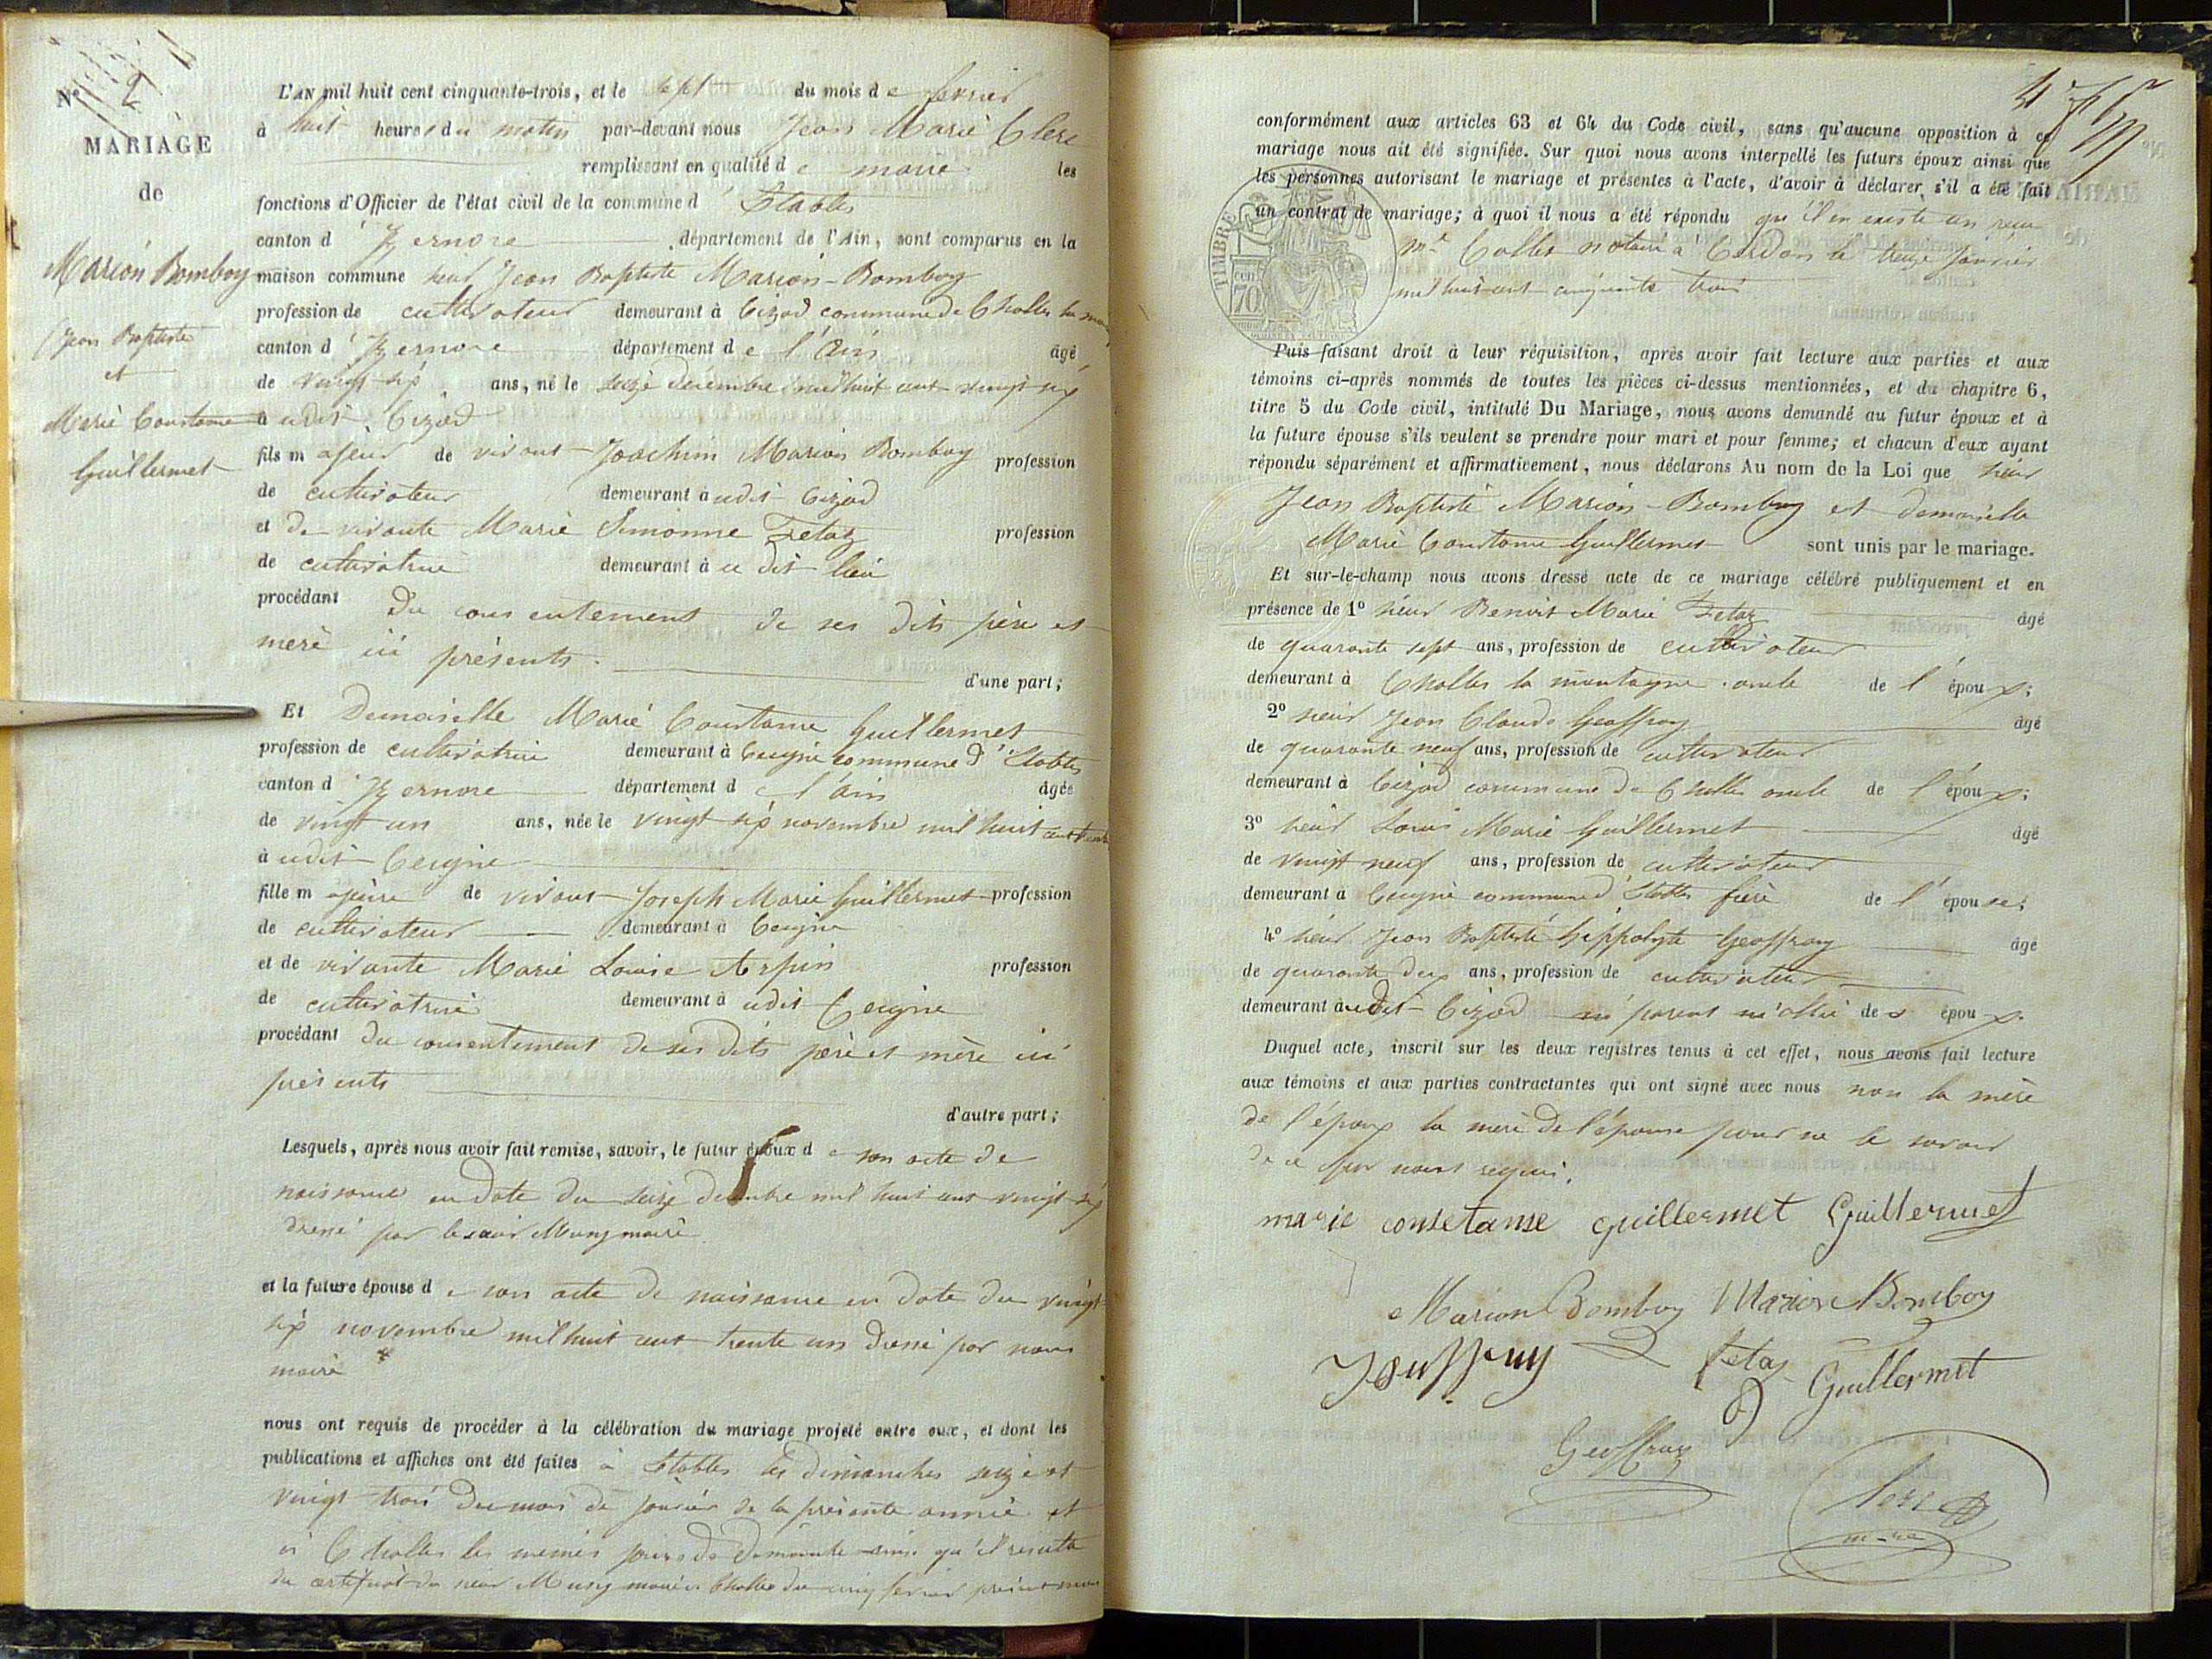 N° 2
MARIAGE
de
Marion Bomboy
Jean Baptiste
et
Marie Constance
Guillermet
L'AN mil huit cent cinquante-trois, et le sept du mois de février
à huit heures du matin par-devant nous Jean Marie Clerc
remplissant en qualité de maire les
fonctions d'Officier de l'état civil de la commune d'Etables
canton d'Izernore département de l'Ain, sont comparus en la
maison commune sieur Jean Baptiste Marion-Bomboy
profession de cultivateur demeurant à Cizod commune de Challes la
canton d'Izernore département de l'Ain âgé
de vingt six ans, né le seize décembre mil huit cent vingt six
audit Cizod
fils majeur de vivant Joachim Marion Bomboy profession
de cultivateur demeurant audit Cizod
et de vivante Marie Simonne Fetaz profession
de cultivatrice demeurant à ce dit lieu
procédant du consentement de ses dits père et
mère ici présents.
d'une part;
Et Demoiselle Marie Constance Guillermet
profession de cultivatrice demeurant à Ceigne commune d'Etables
canton d'Izernore département de l'Ain âgée
de vingt un ans, née le vingt six novembre mil huit cent trente
audit Ceigne
fille majeure de vivant Joseph Marie Guillermet profession
de cultivateur demeurant à Ceigne
et de vivante Marie Louise Arpin profession
de cultivatrice demeurant audit Ceigne
procédant du consentement de ses dits père et mère ici
présents
d'autre part;
Lesquels, après nous avoir fait remise, savoir, le futur époux de son acte de
naissance en date du seize décembre mil huit cent vingt six
dressé par le sieur Musy maire
et la future épouse de son acte de naissance en date du vingt
six novembre mil huit cent trente un dressé par nous
maire
nous ont requis de procéder à la célébration du mariage projeté entre eux, et dont les
publications et affiches ont été faites à Etables les dimanches seize et
vingt trois du mois de janvier de la présente année et
à Challes les mêmes jours de dimanche ainsi qu'il résulte
du certificat du sieur Musy maire à Challes du cinq février présent mois
conformément aux articles 63 et 64 du Code civil, sans qu'aucune opposition à ce
mariage nous ait été signifiée. Sur quoi nous avons interpellé les futurs époux ainsi que
les personnes autorisant le mariage et présentes à l'acte, d'avoir à déclarer s'il a été fait
un contrat de mariage; à quoi il nous a été répondu qu'il en existe un reçu
Me Collet notaire à Cerdon le treize janvier
mil huit cent cinquante trois
TIMBRE
70
Puis faisant droit à leur réquisition, après avoir fait lecture aux parties et aux
témoins ci-après nommés de toutes les pièces ci-dessus mentionnées, et du chapitre 6,
titre 5 du Code civil, intitulé Du Mariage, nous avons demandé au futur époux et à
la future épouse s'ils veulent se prendre pour mari et pour femme; et chacun d'eux ayant
répondu séparément et affirmativement, nous déclarons Au nom de la Loi que sieur
Jean Baptiste Marion-Bomboy et demoiselle
Marie Constance Guillermet sont unis par le mariage.
Et sur-le-champ nous avons dressé acte de ce mariage célébré publiquement et en
présence de 1° sieur Benoit Marie Fetaz âgé
de quarante sept ans, profession de cultivateur
demeurant à Challes la montagne oncle de l'époux;
2° sieur Jean Claude Geoffray âgé
de quarante neuf ans, profession de cultivateur
demeurant à Cizod commune de Challes oncle de l'époux;
3° sieur Louis Marie Guillermet âgé
de vingt neuf ans, profession de cultivateur
demeurant à Ceigne commune d'Etables frère de l'épouse;
4° sieur Jean Baptiste Hippolyte Geoffray âgé
de quarante deux ans, profession de cultivateur
demeurant audit Cizod ni parent ni allié des époux.
Duquel acte, inscrit sur les deux registres tenus à cet effet, nous avons fait lecture
aux témoins et aux parties contractantes qui ont signé avec nous non la mère
de l'époux la mère de l'épouse pour ne le savoir
de ce par nous requis.
marie consetanse guillermet Guillermet
Marion Bomboy Marion Bomboy
Jouffray fetaz Guillermet
Geoffray Clerc
maire